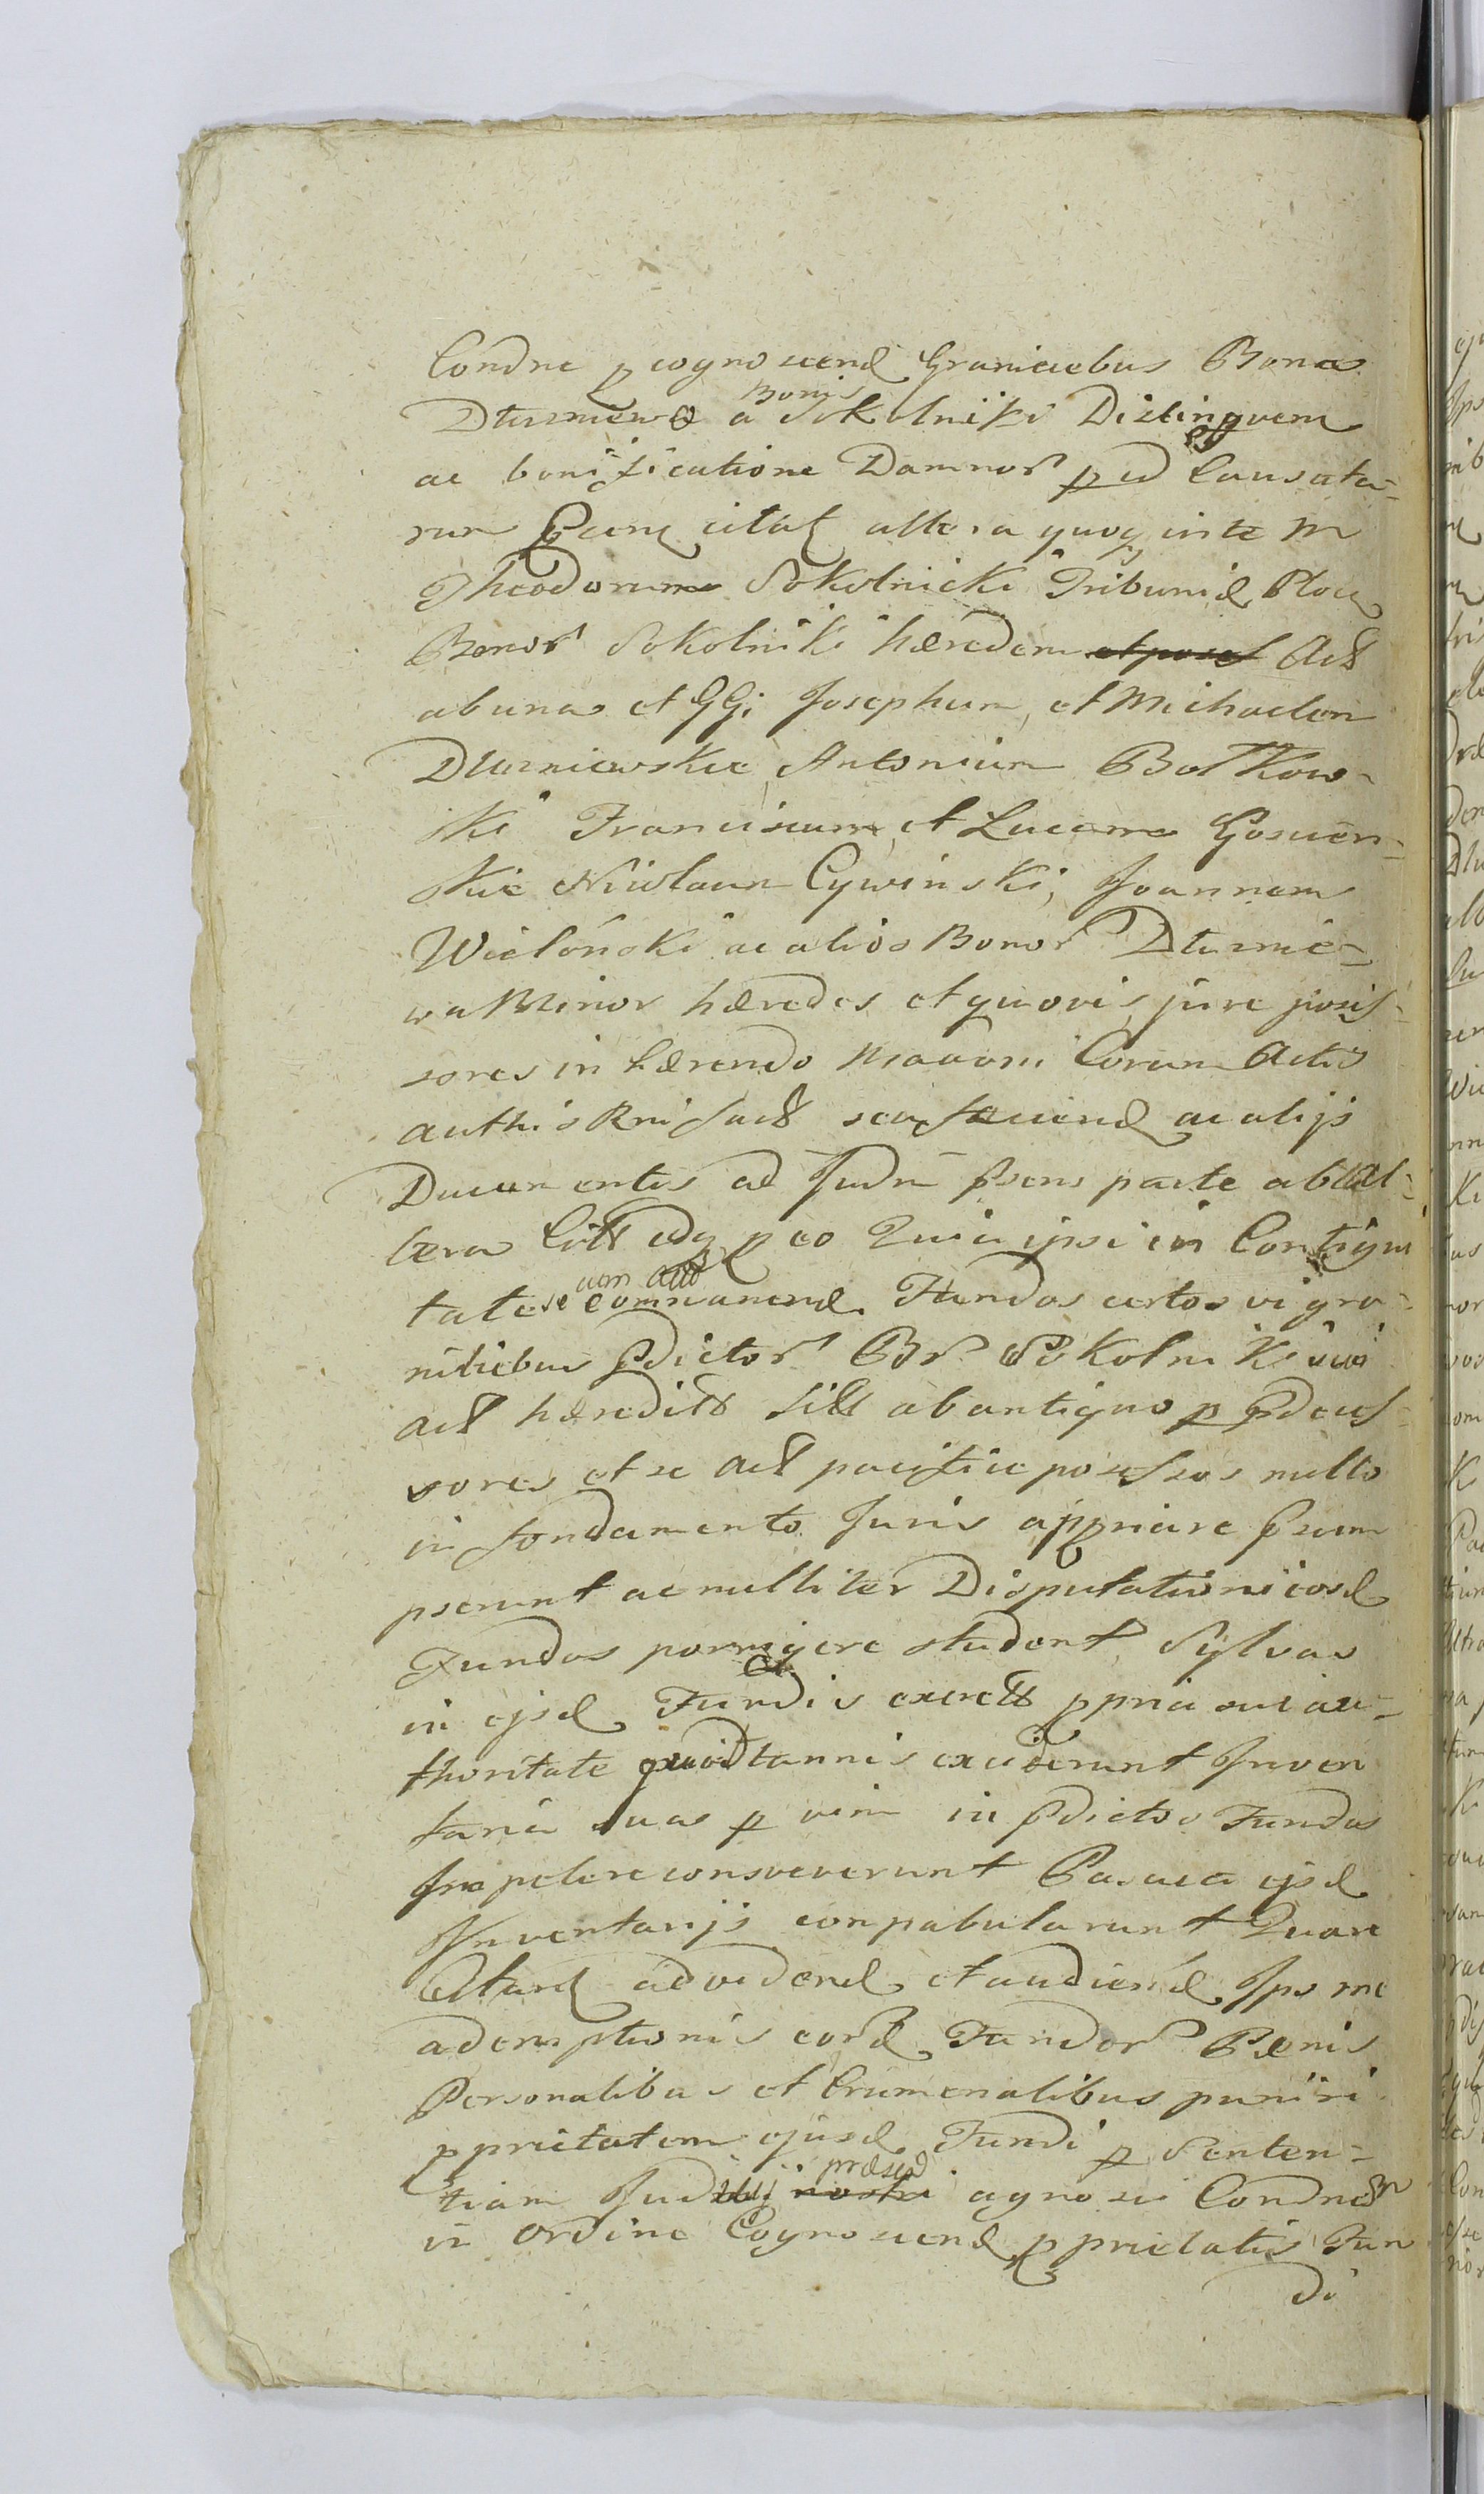 Condne p cognoscend Graniciebus Bona
Dłużniewo a Bonis Sokolniki Distinguem
ac bonificatione Damnor p id Causata-
rum citat altera quoq inte M
Theodorum Sokolnicki Tribunid Ploc
Bonor Sokolniki hæredem et poses Act
ab una et GG Josephum, et Michaelem
Dłużniewskie, Antonium Bołkow-
ski Franciscum, et Lucam
skie Nicolaum Cywinski, Joannem
Wieloński ac alios Bonor Dłużnie-
wa Minor hæredes et quovis jure poss-
sores in hærendo Coram Actis
authis ac alijs
Documentis ad Judm psens parte ab al-
tera Citt p eo Quia ipsi in Contigui
tate se cum Act commanend Fundos certos vi gra-
niciebus pdictor Br Sokolniki
Act hæredit ab antiquo p pdeces-
sores et se Act pacifice possessos nullo
in fondamento Juris appriare psum
pserunt ac nulliter Disputationi eosd
Fundos porrigere student, Sylvas
in ejsd Fundis excret ppria sui au-
thoritate quod tannis exciderunt Inven
taria suas p vim in pdictos Fundos
Impelere consveverunt Pascua ejsd
Inventarijs conpabularunt Quare
Citand ad vidend et audiend Ips me
ademptionis eord Fundor Pænis
Personalibus et Crumenalibus puniri
pprietatem ejusd Fundi p Senten-
tiam Jud nostri præsen agnosci Condnem
in ordine Cognoscend pprietatis Fun
di